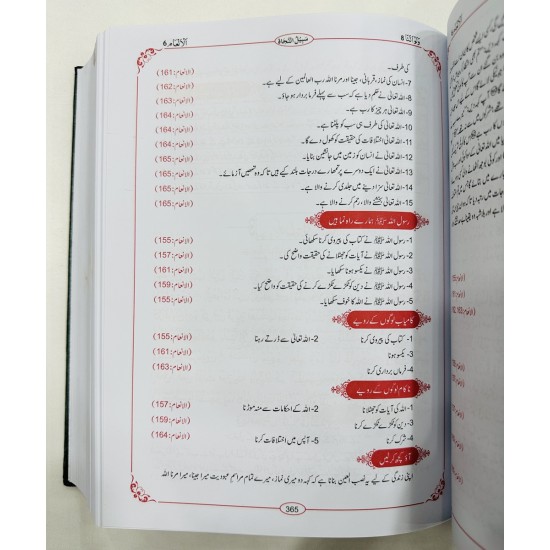 وَلَوْ اَنَّنَا 8 سبیل النجاة الانعام 6
کی طرف۔ (الانعام:161)
7- انسان کی نماز، قربانی، جینا اور مرنا اللہ رب العالمین کے لیے ہے۔ (الانعام:162)
8- اللہ تعالیٰ نے حکم دیا ہے کہ سب سے پہلے فرماں بردار ہو جاؤ۔ (الانعام:163)
9- اللہ تعالیٰ ہر چیز کا رب ہے۔ (الانعام:164)
10- اللہ تعالیٰ کی طرف ہی سب کو پلٹنا ہے۔ (الانعام:164)
11- اللہ تعالیٰ اختلافات کی حقیقت کو کھول دے گا۔ (الانعام:164)
12- اللہ تعالیٰ نے انسان کو زمین میں جانشین بنایا۔ (الانعام:165)
13- اللہ تعالیٰ نے ایک دوسرے پر تمھارے درجات بلند کیے ہیں تاکہ وہ تمھیں آزمائے۔ (الانعام:165)
14- اللہ تعالیٰ سزا دینے میں جلدی کرنے والا ہے۔ (الانعام:165)
15- اللہ تعالیٰ بخشنے والا، رحم کرنے والا ہے۔ (الانعام:165)
رسول اللہ ﷺ ہمارے راہ نما ہیں
1- رسول اللہ ﷺ نے کتاب کی پیروی کرنا سکھائی۔ (الانعام:155)
2- رسول اللہ ﷺ نے آیات کو جھٹلانے کی حقیقت واضح کی۔ (الانعام:157)
3- رسول اللہ ﷺ نے یکسو ہونا سکھایا۔ (الانعام:161)
4- رسول اللہ ﷺ نے دین کو ٹکڑے ٹکڑے کرنے کی حقیقت کو واضح کیا۔ (الانعام:159)
5- رسول اللہ ﷺ نے اللہ کا خوف سکھایا۔ (الانعام:155)
کامیاب لوگوں کے رویے
1- کتاب کی پیروی کرنا 2- اللہ تعالیٰ سے ڈرتے رہنا (الانعام:155)
3- یکسو ہونا (الانعام:161)
4- فرماں برداری کرنا (الانعام:163)
ناکام لوگوں کے رویے
1- اللہ کی آیات کو جھٹلانا 2- اللہ کے احکامات سے منہ موڑنا (الانعام:157)
3- دین کو ٹکڑے ٹکڑے کرنا (الانعام:159)
4- شرک کرنا 5- آپس میں اختلافات کرنا (الانعام:164)
آؤ کچھ کر لیں
اپنی زندگی کے لیے یہ نصب العین بنانا ہے کہ کہہ دو میری نماز، میرے تمام مراسم عبودیت میرا جینا، میرا مرنا اللہ
365